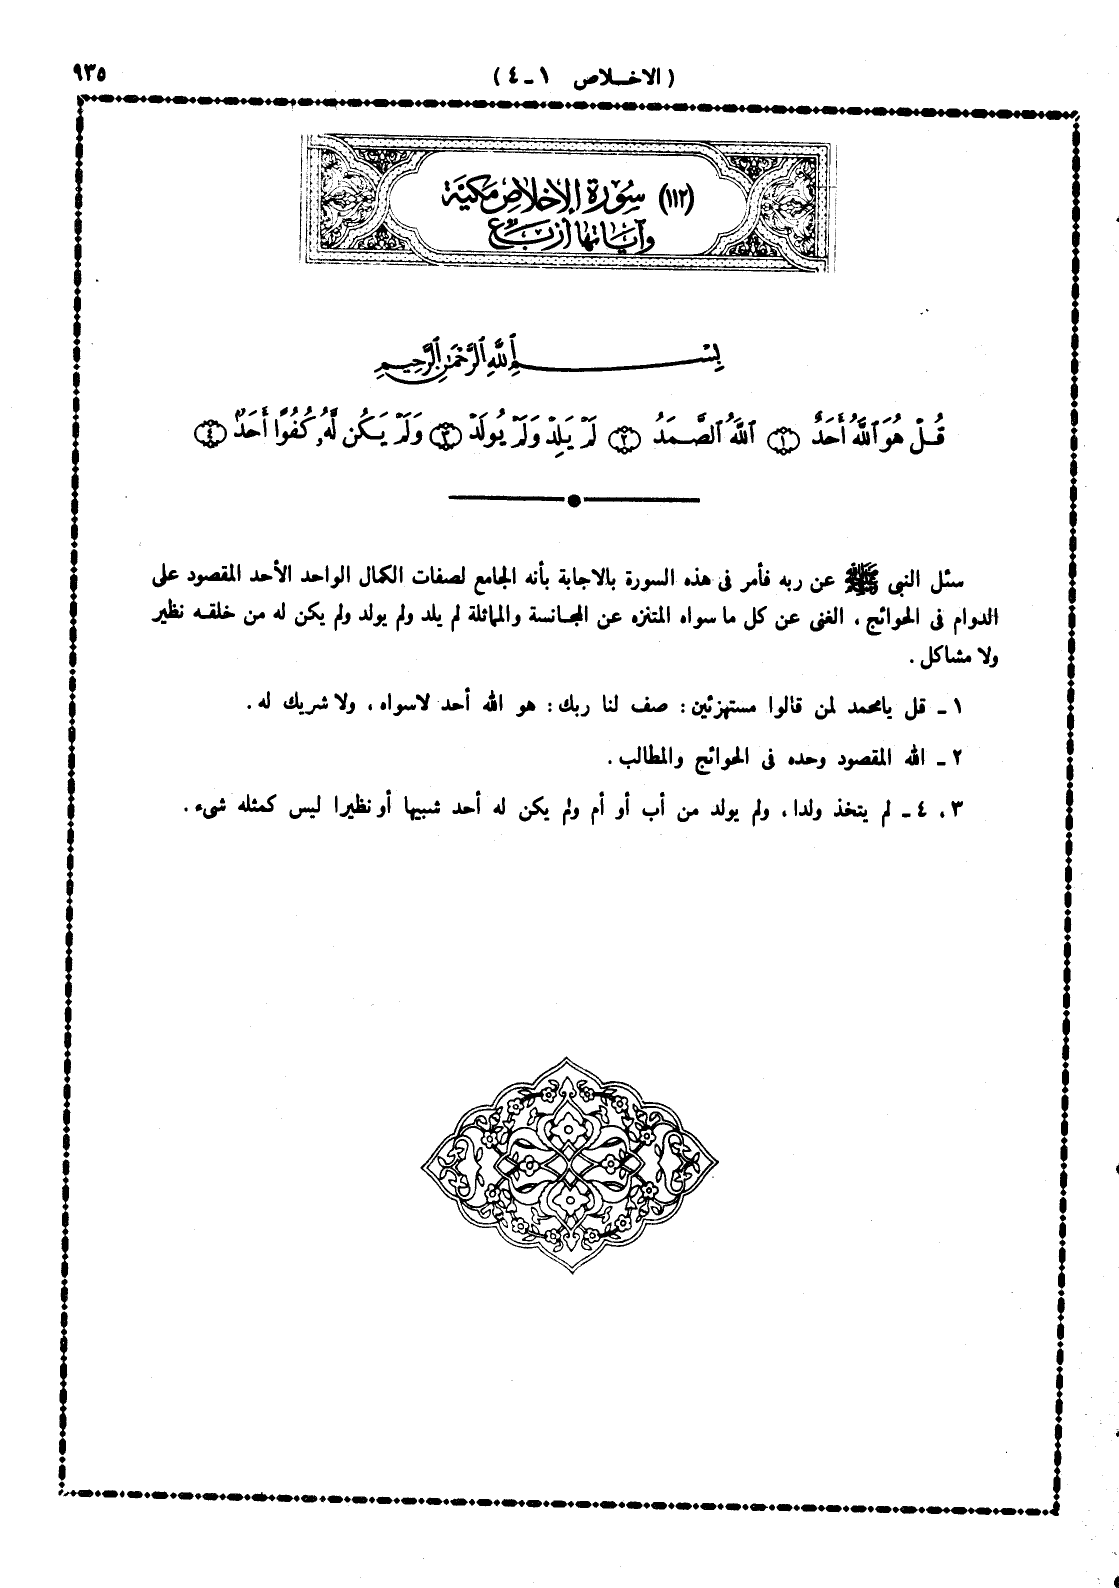 (الاخلاص ١ـ٤) ٩٣٥
(١١٢) سُورَة الإخلاص مَكيَّة
وآياتها أربَع
بِسْمِ ٱللَّهِ ٱلرَّحْمَٰنِ ٱلرَّحِيمِ
قُلْ هُوَ ٱللَّهُ أَحَدٌ ١ ٱللَّهُ ٱلصَّمَدُ ٢ لَمْ يَلِدْ وَلَمْ يُولَدْ ٣ وَلَمْ يَكُن لَّهُۥ كُفُوًا أَحَدٌۢ ٤
سئل النبى ﷺ عن ربه فأمر فى هذه السورة بالاجابة بأنه الجامع لصفات الكمال الواحد الأحد المقصود على
الدوام فى الحوائج، الغنى عن كل ما سواه المتنزه عن المجانسة والمماثلة لم يلد ولم يولد ولم يكن له من خلقه نظير
ولا مشاكل.
١ ـ قل يامحمد لمن قالوا مستهزئين: صف لنا ربك: هو الله أحد لاسواه، ولا شريك له.
٢ ـ الله المقصود وحده فى الحوائج والمطالب.
٣، ٤ ـ لم يتخذ ولدا، ولم يولد من أب أو أم ولم يكن له أحد شبيها أو نظيرا ليس كمثله شىء.